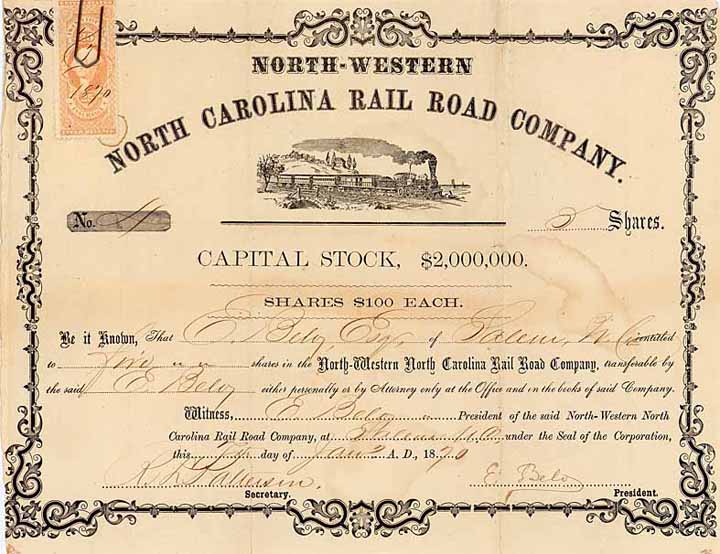 1870
NORTH-WESTERN
NORTH CAROLINA RAIL ROAD COMPANY.
No. 4 5 Shares.
CAPITAL STOCK, $2,000,000.
SHARES $100 EACH.
Be it Known, That E. Belo, Esqr. of Salem, N.C. entitled
to five shares in the North-Western North Carolina Rail Road Company, transferable by
the said E. Belo, either personally or by Attorney only at the Office and in the books of said Company.
Witness, E. Belo President of the said North-Western North
Carolina Rail Road Company, at Salem N.C. under the Seal of the Corporation,
this day of Jany A. D., 1870
Patterson E. Belo
Secretary. President.